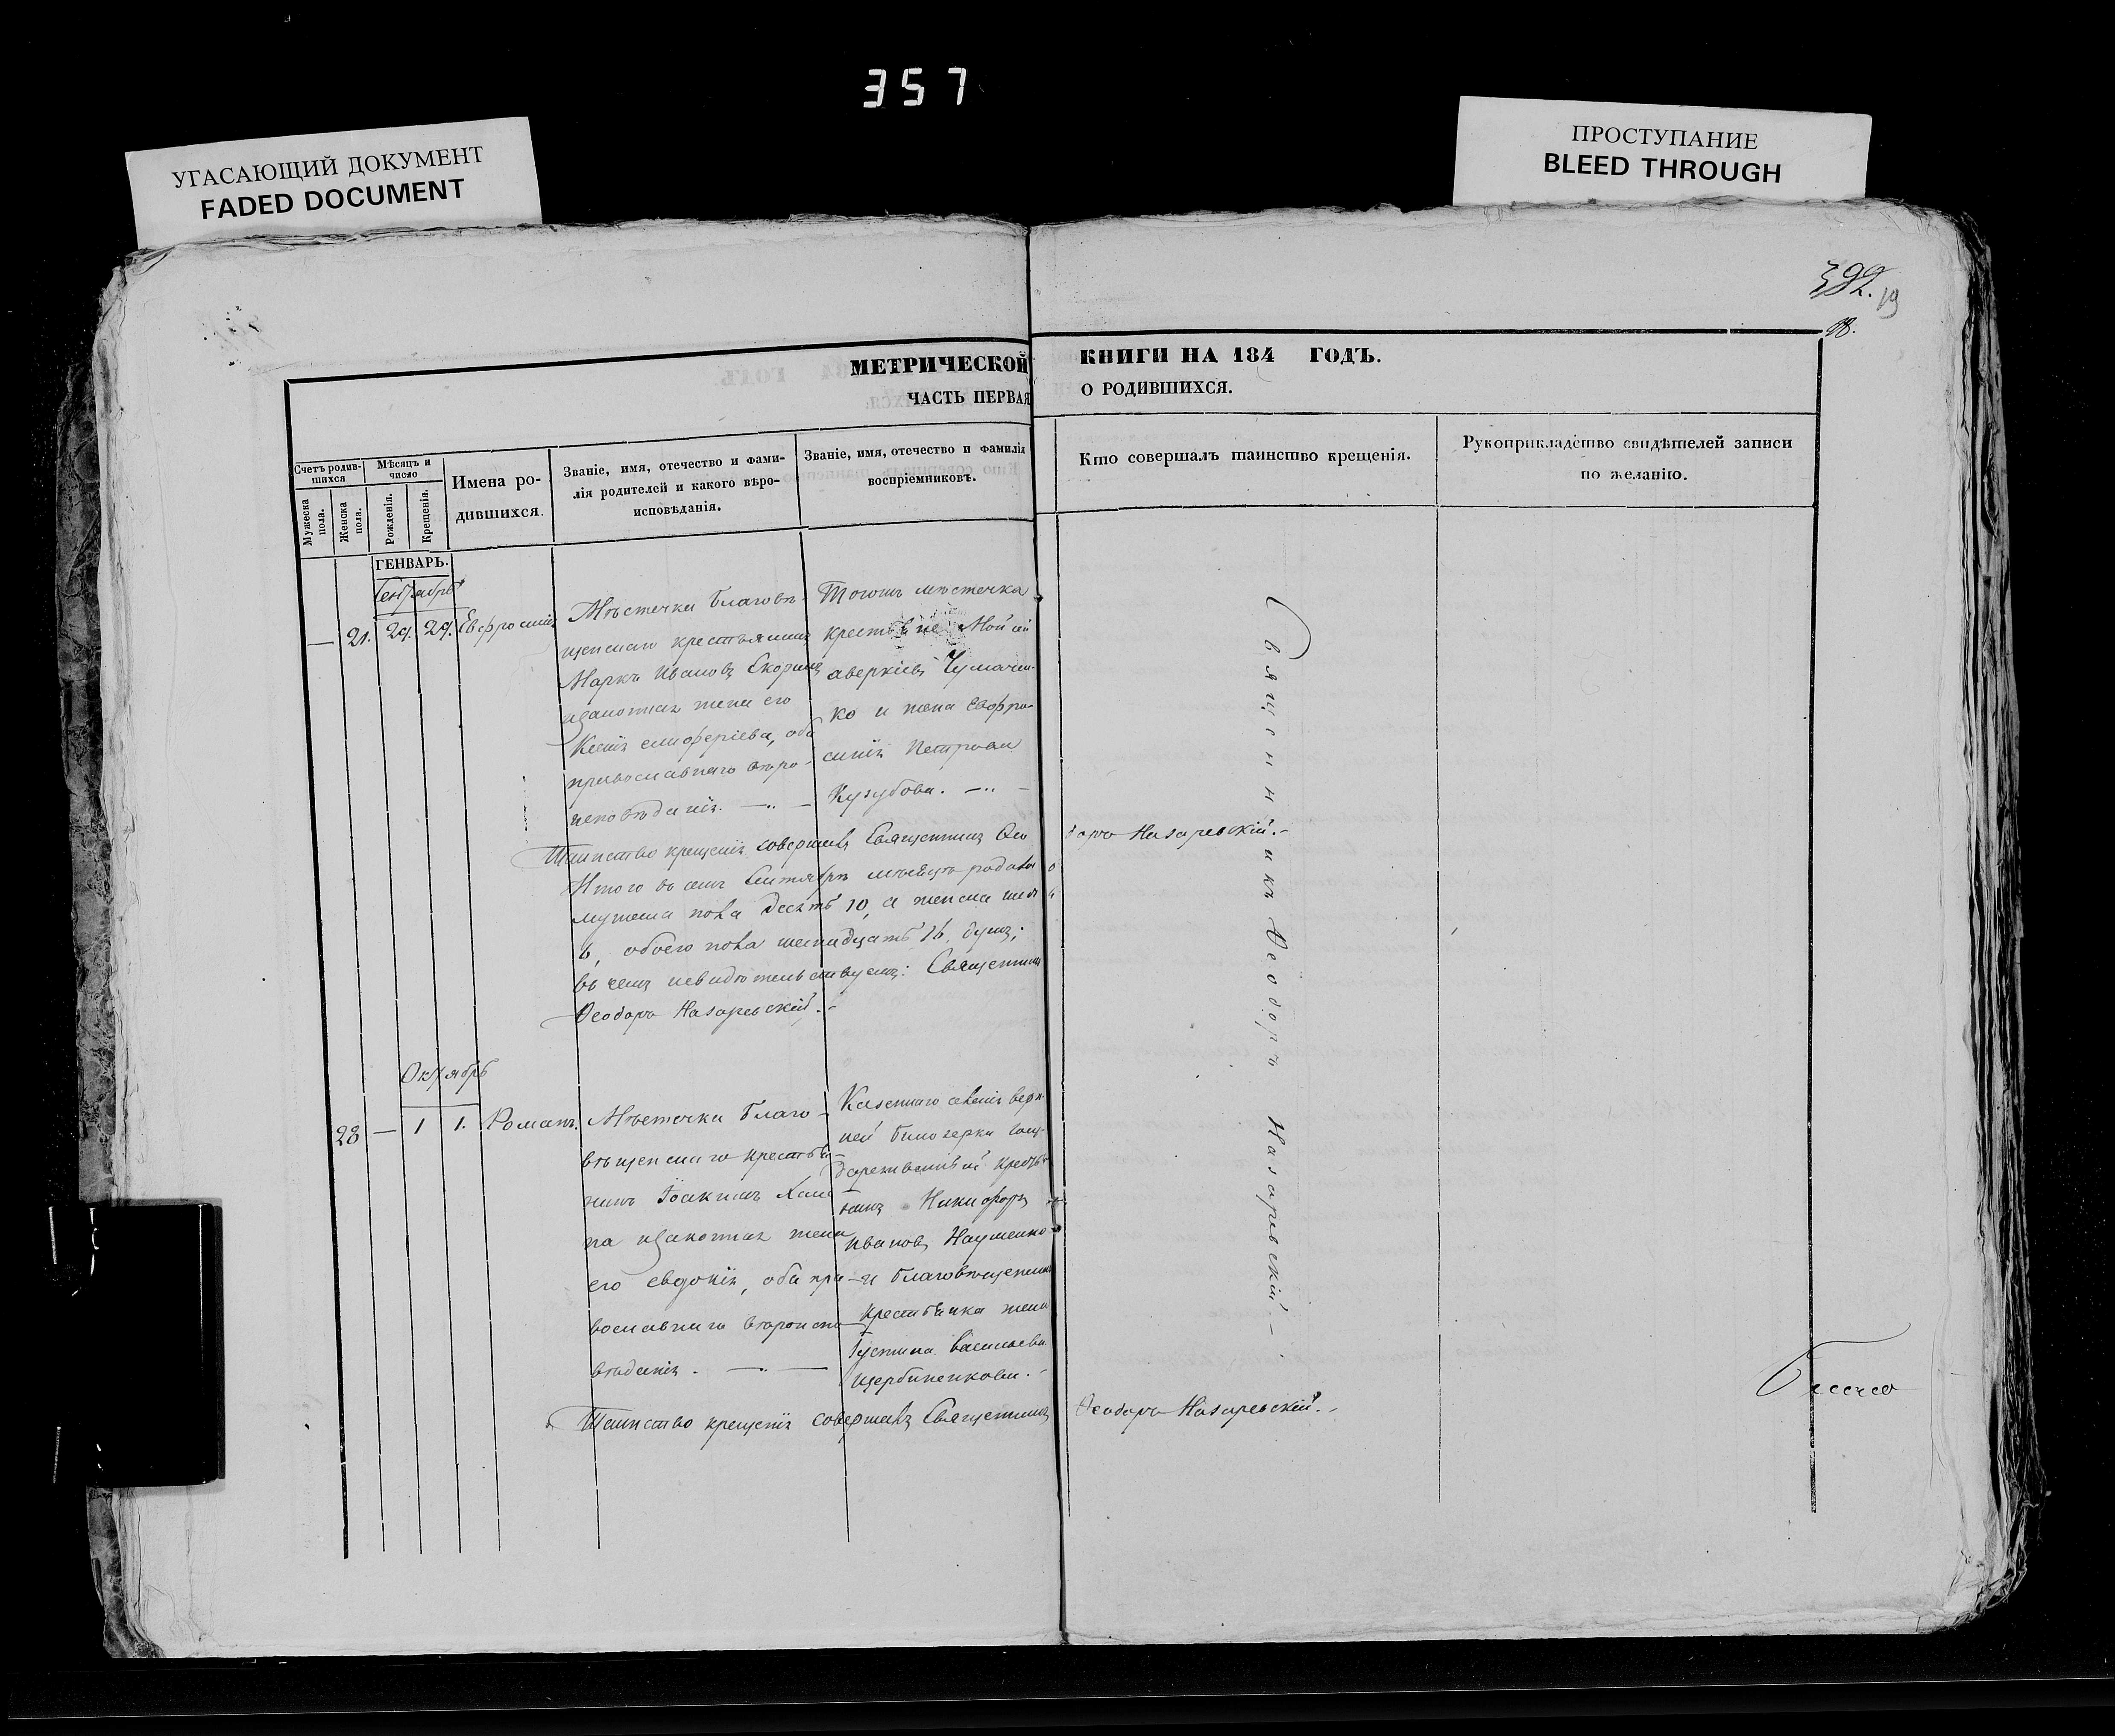 357
УГАСАЮЩИЙ ДОКУМЕНТ
FADED DOCUMENT
ПРОСТУПАНИЕ
BLEED THROUGH
392.
19
МЕТРИЧЕСКОЙ КНИГИ НА 184 ГОДЪ.
ЧАСТЬ ПЕРВАЯ О РОДИВШИХСЯ.
Счетъ родив-
шихся
Мужеска пола.
Женска пола.
Мѣсяцъ и
число
Рожденія.
Крещенія.
Имена ро-
дившихся.
Званіе, имя, отечество и фами-
лія родителей и какого вѣро-
исповѣданія.
Званіе, имя, отечество и фамилія
воспріемниковъ.
Кто совершалъ таинство крещенія.
Рукоприкладство свидѣтелей записи
по желанію.
ГЕНВАРЬ.
— 21. 29. 29. Евфросинія
Мѣстечка Благовѣ-
щенскаго крестьянинъ
Маркъ Ивановъ
изаконная жена его
Ксенія елиоферіева, оба
православнаго вѣро-
исповѣданія. —
Тогожъ мѣстечка
крестьяне Мойсей
аверкіевъ Чумачен-
ко и жена Евфро-
синія Петрова
Кузубова. —
Таинство крещенія совершавъ Священникъ Ѳео
доръ Назаревскій.
Итого въ семъ Сентябрѣ мѣсяцѣ
мужеска пола десять 10, а женска
6, обоего пола шеснадцать 16, душъ;
въ чемъ Священникъ
Ѳеодоръ Назаревскій.
Священникъ Ѳеодоръ Назаревскій
Октябрь
28 — 1 1. Романъ.
Мѣстечка Благо-
вѣщенскаго крестья
нинъ Іоакимъ
на изаконная жена
его евдокія, оба пра-
вославнаго вѣроиспо
вѣданія. —
Казеннаго селенія верх-
ней
крестья
нинъ Никифоръ
Ивановъ Науменко
и благовѣщенска
крестьянка жена
васильева
щербиненкова.
Таинство крещенія совершавъ Священникъ
Ѳеодоръ Назаревскій.